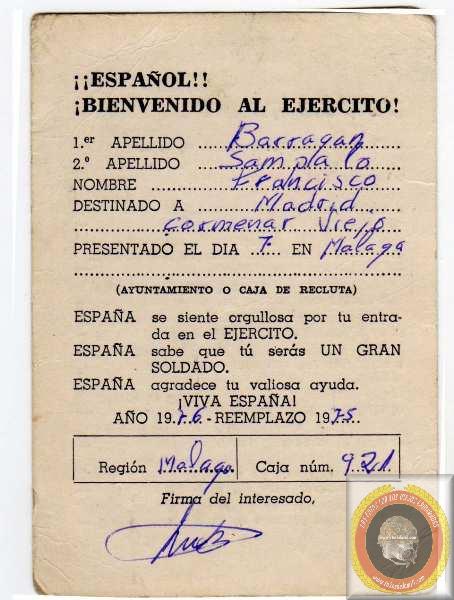 ¡¡ESPAÑOL!!
¡BIENVENIDO AL EJERCITO!
1.er APELLIDO Barragan
2.º APELLIDO Sampalo
NOMBRE Francisco
DESTINADO A Madrid
Cormenar Viejo
PRESENTADO EL DIA 7 EN Malaga
(AYUNTAMIENTO O CAJA DE RECLUTA)
ESPAÑA se siente orgullosa por tu entra-
da en el EJERCITO.
ESPAÑA sabe que tú serás UN GRAN
SOLDADO.
ESPAÑA agradece tu valiosa ayuda.
¡VIVA ESPAÑA!
AÑO 1976-REEMPLAZO 1975
Región Malaga Caja núm. 921
Firma del interesado,